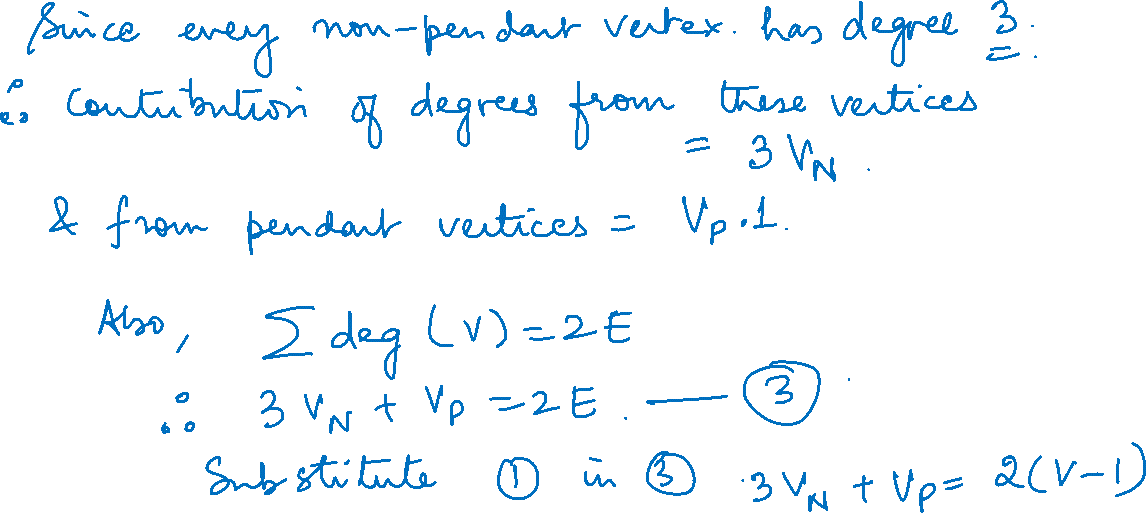 Since every non-pendant vertex. has degree 3.
∴ Contribution of degrees from these vertices
= 3 V_N .
& from pendant vertices = V_P . 1.
Also, ∑ deg (V) = 2E
∴ 3 V_N + V_P = 2E . — ③
Substitute ① in ③ 3 V_N + V_P = 2(V-1)